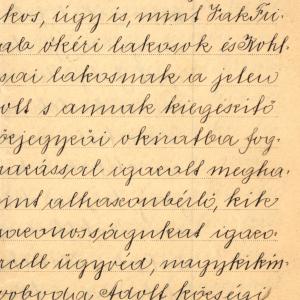 kos, úgy is, mint Jak Fri-
ab ókéri lakosok és Kohl
sai lakosnak a jelen
olt s annak kiegészitő
özjegyzői okiratba fog-
hatással igazolt megha-
mint alhaszonbérlő, kik
azonosságukat igazo-
rcell ügyvéd, nagykikin-
voboda Adolf községi